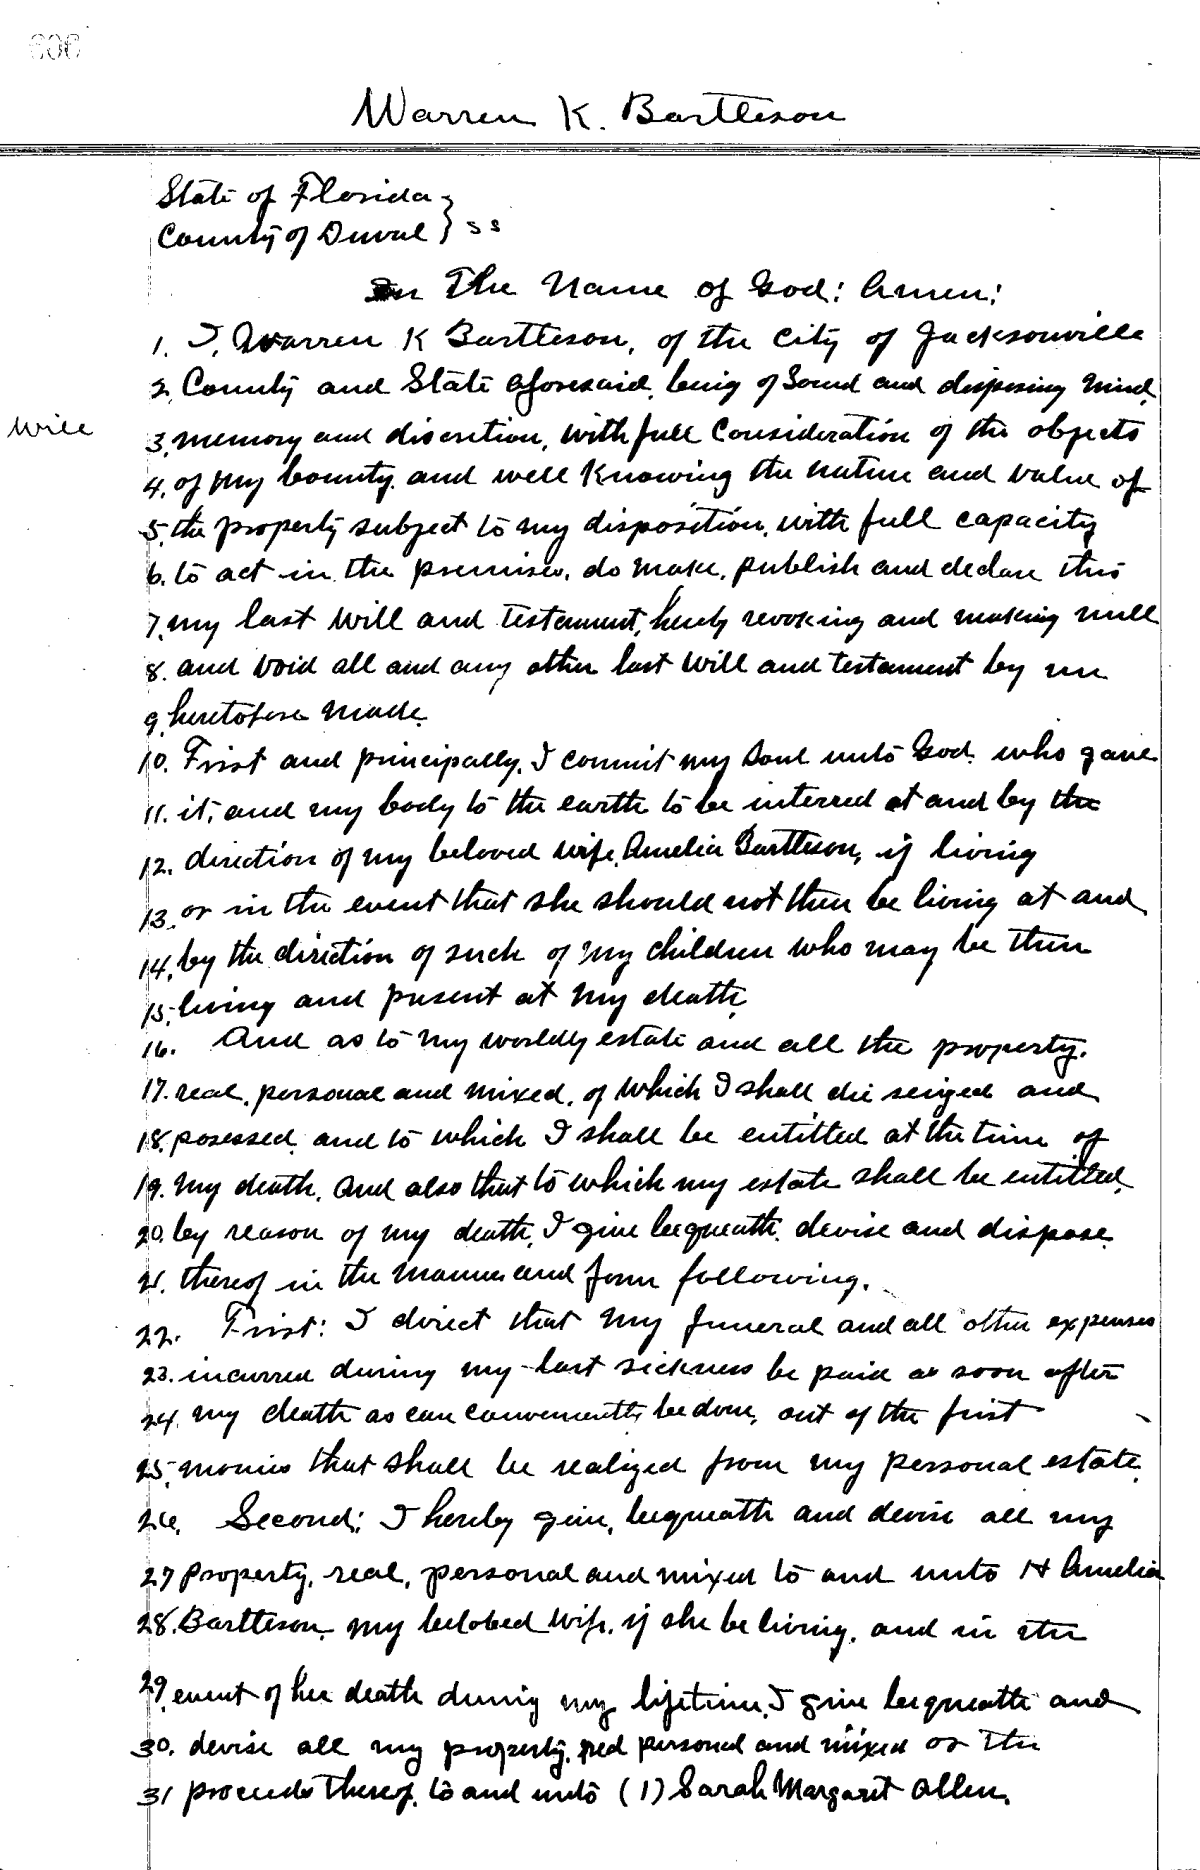 606
Warren K. Bartleson
State of Florida }
County of Duval } ss
In The Name of God: Amen:
1. I, Warren K Bartleson, of the City of Jacksonville
2. County and State aforesaid, being of Sound and disposing mind,
Will
3. memory and discretion, with full Consideration of the objects
4. of my bounty, and well Knowing the nature and value of
5. the property subject to my disposition, with full capacity
6. to act in the premises, do make, publish and declare this
7. my last Will and testament, hereby revoking and making null
8. and void all and any other last Will and testament by me
9. heretofore made.
10. First and principally, I commit my Soul unto God, who gave
11. it, and my body to the earth to be interred at and by the
12. direction of my beloved wife, Amelia Bartleson, if living
13. or in the event that she should not then be living at and
14. by the direction of such of my children who may be then
15. living and present at my death.
16. And as to my worldly estate and all the property,
17. real, personal and mixed, of which I shall die seized and
18. posessed, and to which I shall be entitled at the time of
19. my death, and also that to which my estate shall be entitled,
20. by reason of my death, I give bequeath, devise and dispose
21. thereof in the manner and form following.
22. First: I direct that my funeral and all other expenses
23. incurred during my last sickness be paid as soon after
24. my death as can conveniently be done, out of the first
25. monies that shall be realized from my personal estate.
26. Second: I hereby give, bequeath and devise all my
27 Property, real, personal and mixed to and unto H Amelia
28. Bartleson, my belobed wife, if she be living, and in the
29. event of her death during my lifetime, I give bequeath and
30. devise all my property, real personal and mixed or the
31 proceeds thereof, to and unto (1) Sarah Margaret Allen,